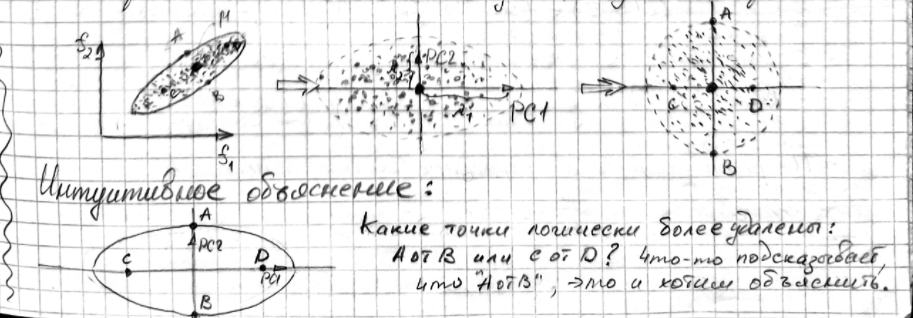 f2
A
M
C
B
f1
PC2
λ2
λ1
PC1
A
C
D
B
Интуитивное объяснение:
A
PC2
C
D
PC1
B
Какие точки логически более удалены:
A от B или C от D? Что-то подсказывает,
что "A от B", это и хотим объяснить.